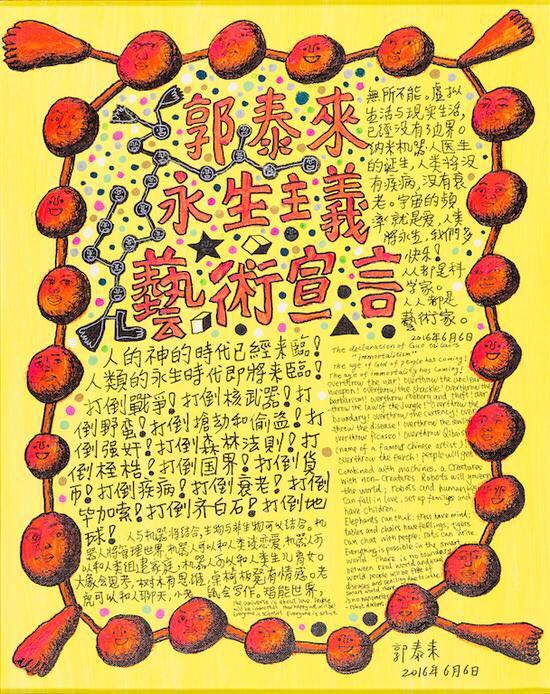 郭泰來
永生主義
藝術宣言
人的神的時代已經来臨!
人類的永生時代即將来臨!
打倒戰爭!打倒核武器!打
倒野蛮!打倒搶劫和偷盗!打
倒强奸!打倒森林法則!打
倒桎梏!打倒国界!打倒貨
币!打倒疾病!打倒衰老!打倒
毕加索!打倒齐白石!打倒地
球!
人与机器將结合,生物与非生物可以结合。机
器人將管理世界,机器人可以和人类谈恋爱,机器人可
以和人类组建家庭,机器人可以和人类生儿育女。
大象会思考,树林有思维,桌椅板凳有情感。老
虎可以和人聊天,小老鼠会写作。智能世界,
無所不能。虚拟
生活与现实生活,
已經没有边界。
纳米机器人医生
的诞生,人类將没
有疾病,没有衰
老。宇宙的頻
率就是爱,人类
將永生,我們多
快乐!
人人都是科
学家。
人人都是
藝術家。
2016年6月6日
The declaration of Guo tailai's
"immortalitism"
The age of God of people has coming!
The age of immortality has coming!
overthrow the war! overthrow the nuclear
weapon! overthrow the
barbarism! overthrow robbery and theft! over
throw the law of the jungle! overthrow the
boundary! overthrow the currency! over
throw the disease! overthrow the
overthrow picasso! overthrow Qibaishi
(name of a famous Chinese artist)!
overthrow the earth! people will get
Combined with machines, a Creatures
with non-Creatures. Robots will govern
the world; robots and human
can fall in love, set up families and
have children.
Elephants can think; trees have mind;
tables and chairs have feelings; tigers
can chat with people; rats can write.
Everything is possible in the smart
world. There is no boundary
between real world and
world. people will be free of
diseases and
The universe is about love. People
will be immortal. how happy we will be!
Everyone is scientist. Everyone is artist.
郭泰来
2016年6月6日